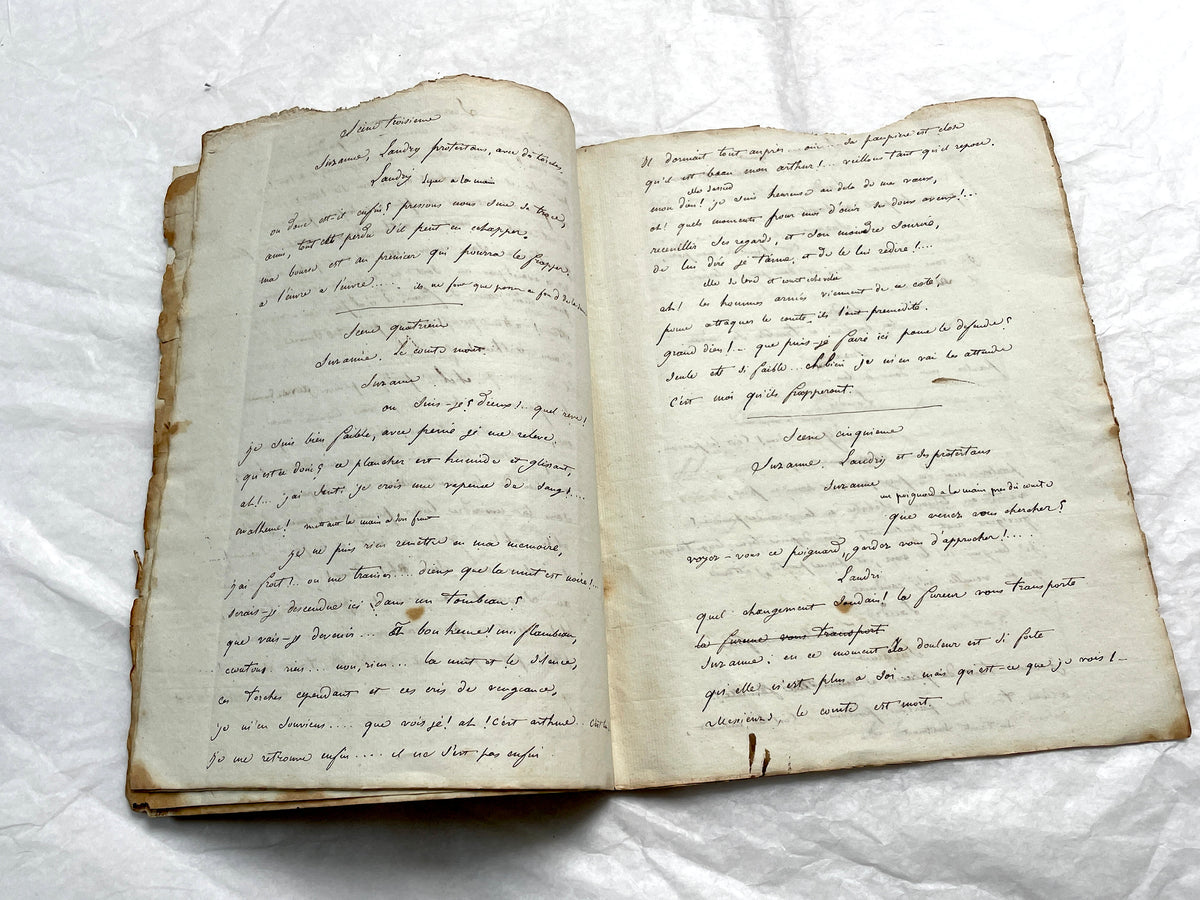 Scène troisieme
Suzanne, Landry protestans, avec des torches,
Landry l'épée a la main
ou donc est-il enfin? pressons nous sur sa trace,
amis, tout est perdu s'il peut en echapper.
ma bourse est au premier qui pourra le frapper.
a l'œuvre a l'œuvre.... ils ne font que passer au fond de la
Scene quatrieme
Suzanne. Le comte mort
Suzanne
ou suis-je? dieux!.. quel reve!
je suis bien faible, avec peine je me releve.
qu'est ce donc? ce plancher est humide et glissant,
ah!... j'ai senti je crois une vapeur de sang!....
anatheme! mettant la main a son front
je ne puis rien remettre en ma memoire,
j'ai froid!.. ou me trainer.... dieux que la nuit est noire!..
serais-je descendue ici dans un tombeau?
que vais-je devenir... bonheur! un flambeau,
ecoutons rien... non, rien... la nuit et le silence,
ces torches cependant et ces cris de vengeance,
je m'en souviens.... que vois-je! ah! c'est arthur... c'est lui
je me retrouve enfin.... il ne s'est pas enfui
Il dormait tout aupres sa paupiere est close
qu'il est beau mon arthur!... veillons tant qu'il repose.
elle s'assied
mon dieu! je suis heureuse au dela de mes vœux,
oh! quels moments pour moi d'ouir ses doux aveux!...
recueillir ses regards, et son moindre sourire,
de lui dire je t'aime, et de le lui redire!...
elle se leve et vont chercher
ah! les hommes armés viennent de ce coté,
pour attaquer le comte, ils l'ont premedité.
grand dieu!.. que puis-je faire ici pour le defendre?
seule et si faible... eh bien je m'en vai les attendre
c'est moi qu'ils frapperont.
Scene cinquieme
Suzanne. Landry et des protestans
Suzanne
un poignard a la main pres du comte
que venez vous chercher?
voyez-vous ce poignard, gardez vous d'approcher!....
Landri
quel changement soudain! la fureur vous transporte
la fureur vous transport
Suzanne! en ce moment la douleur est si forte
qu'elle n'est plus a soi... mais qu'est-ce que je vois!-
Messieurs, le comte est mort.